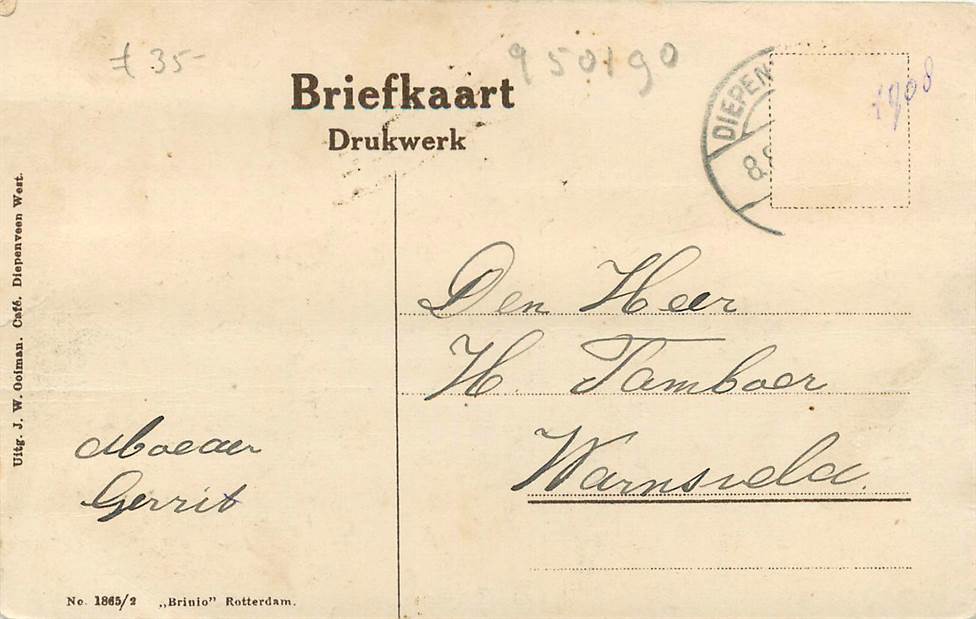 ƒ 35-
950190
Briefkaart
Drukwerk
DIEPEN
8.
1908
Uitg. J. W. Ooiman. Café. Diepenveen West.
Den Heer
H. Tamboer
Warnsveld.
Moeder
Gerrit
No. 1865/2 „Brinio” Rotterdam.